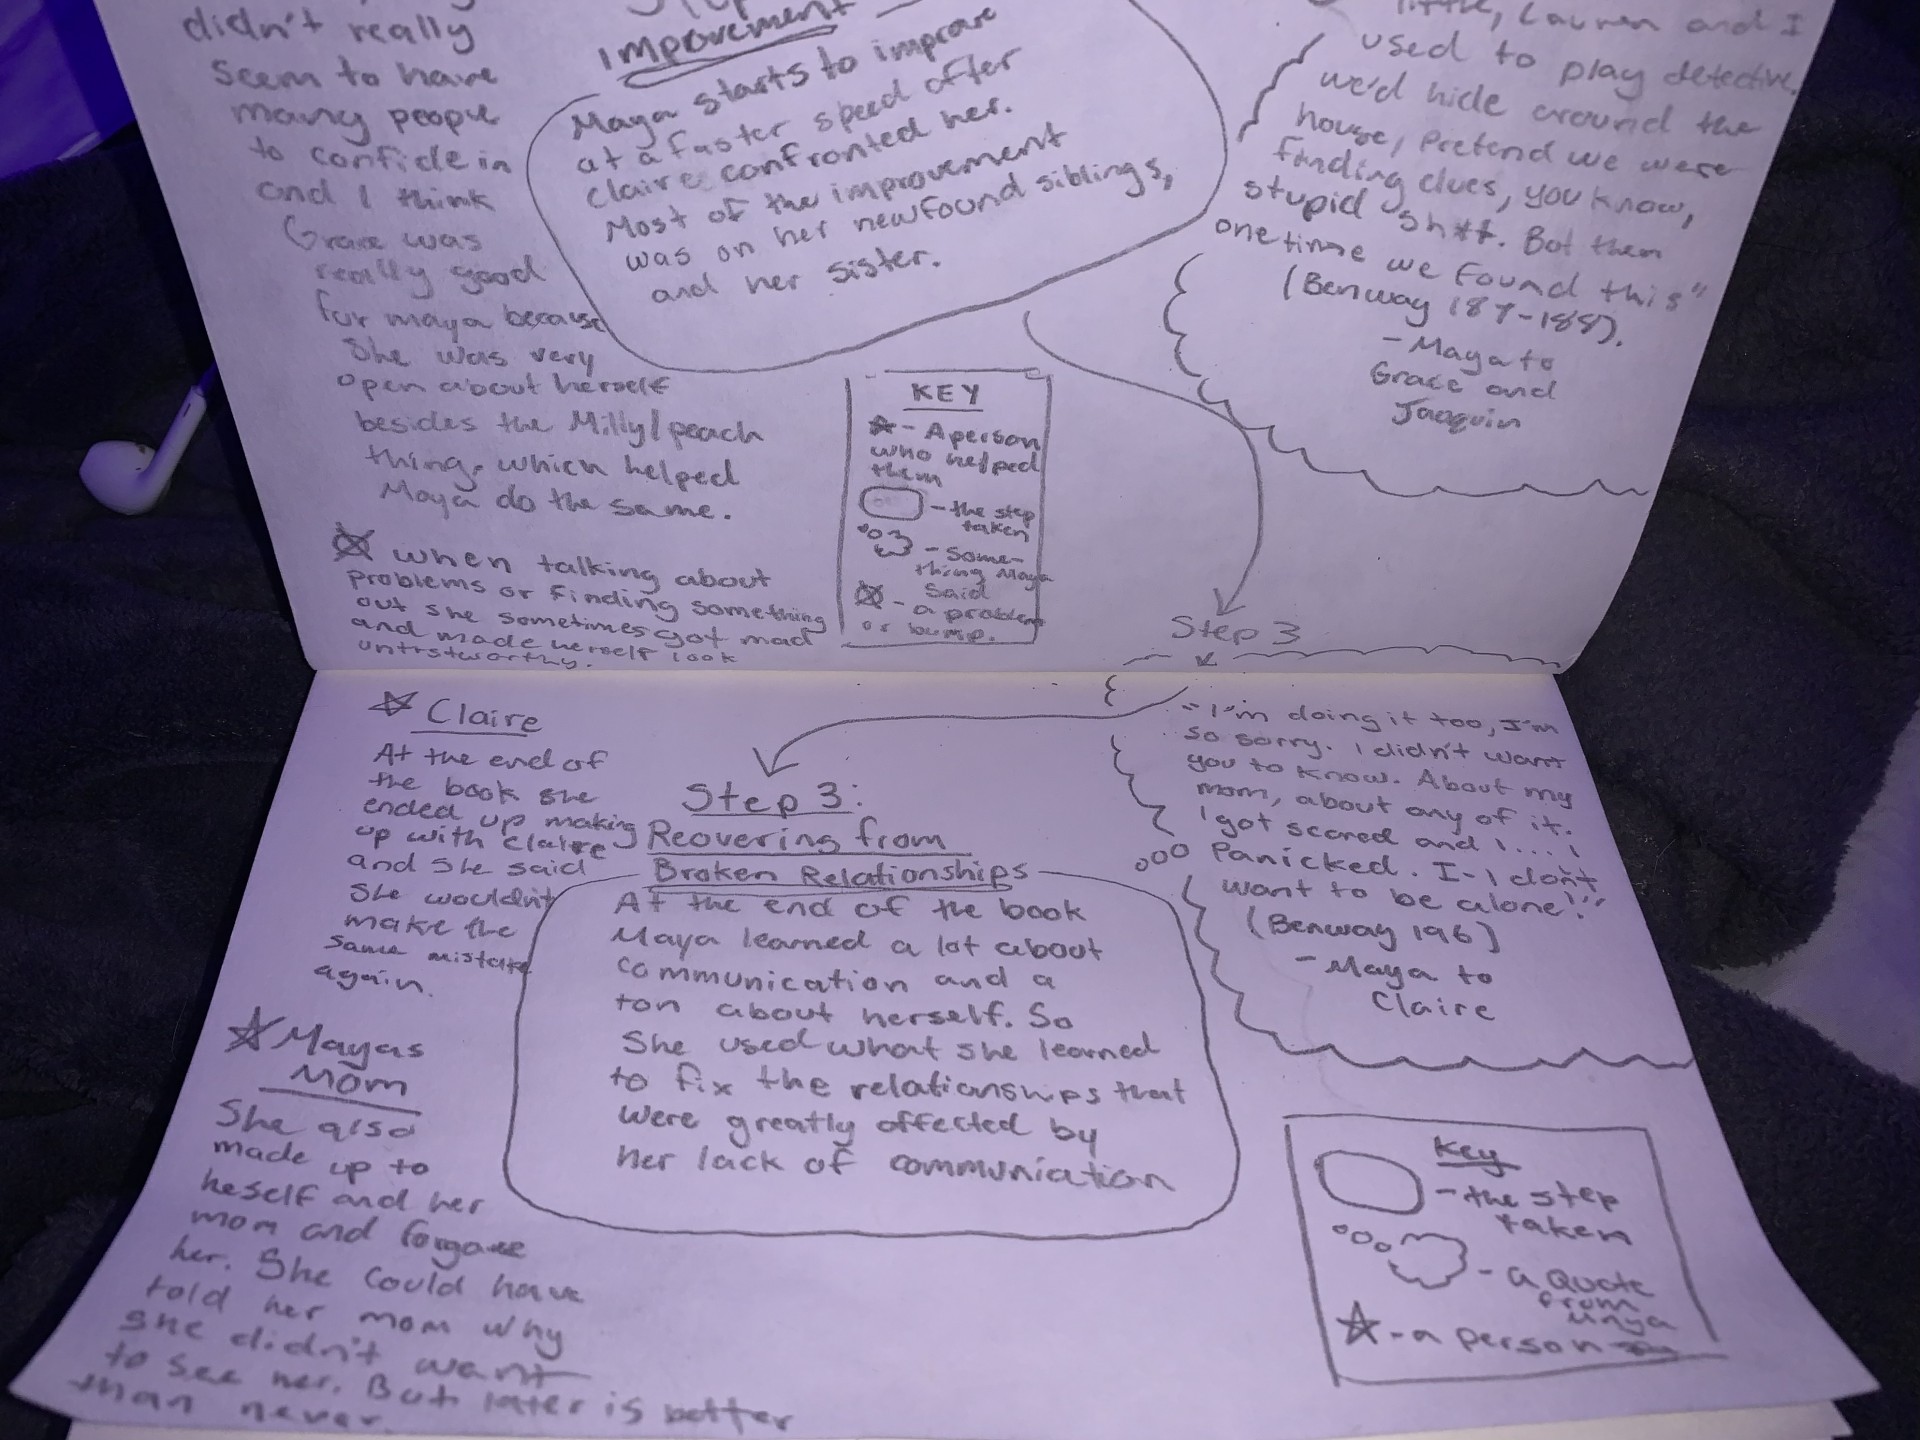 didn't really
seem to have
many people
to confide in
and I think
Grace was
really good
for maya because
She was very
open about herself
besides the Milly/peach
thing, which helped
Maya do the same.
when talking about
problems or finding something
out she sometimes got mad
and made herself look
untrstworthy.
Impovement
Maya starts to improve
at a faster speed after
Claire confronted her.
Most of the improvement
was on her newfound siblings,
and her sister.
little, Lauren and I
used to play detective.
we'd hide around the
house, Pretend we were
finding clues, you know,
stupid sh*t. But them
one time we found this"
(Benway 187-188).
- Maya to
Grace and
Joaquin
KEY
- A person
who helped
them
- the step
taken
- Some-
thing Maya
Said
- a problem
or bump.
Step 3
Claire
At the end of
the book she
ended up making
up with Claire
and she said
She wouldn't
make the
same mistake
again.
Mayas
Mom
She also
made up to
heself and her
mom and forgave
her. She could have
told her mom why
she didn't want
to see her. But later is better
than never.
Step 3:
Reovering from
Broken Relationships
At the end of the book
Maya learned a lot about
communication and a
ton about herself. So
She used what she learned
to fix the relationships that
were greatly affected by
her lack of communiation
"I'm doing it too, I'm
so sorry. I didn't want
you to know. About my
mom, about any of it.
I got scared and I.... I
Panicked. I-I don't
want to be alone!"
(Benway 196)
- Maya to
Claire
Key
- the step
taken
- a Quote
from
Maya
- a person